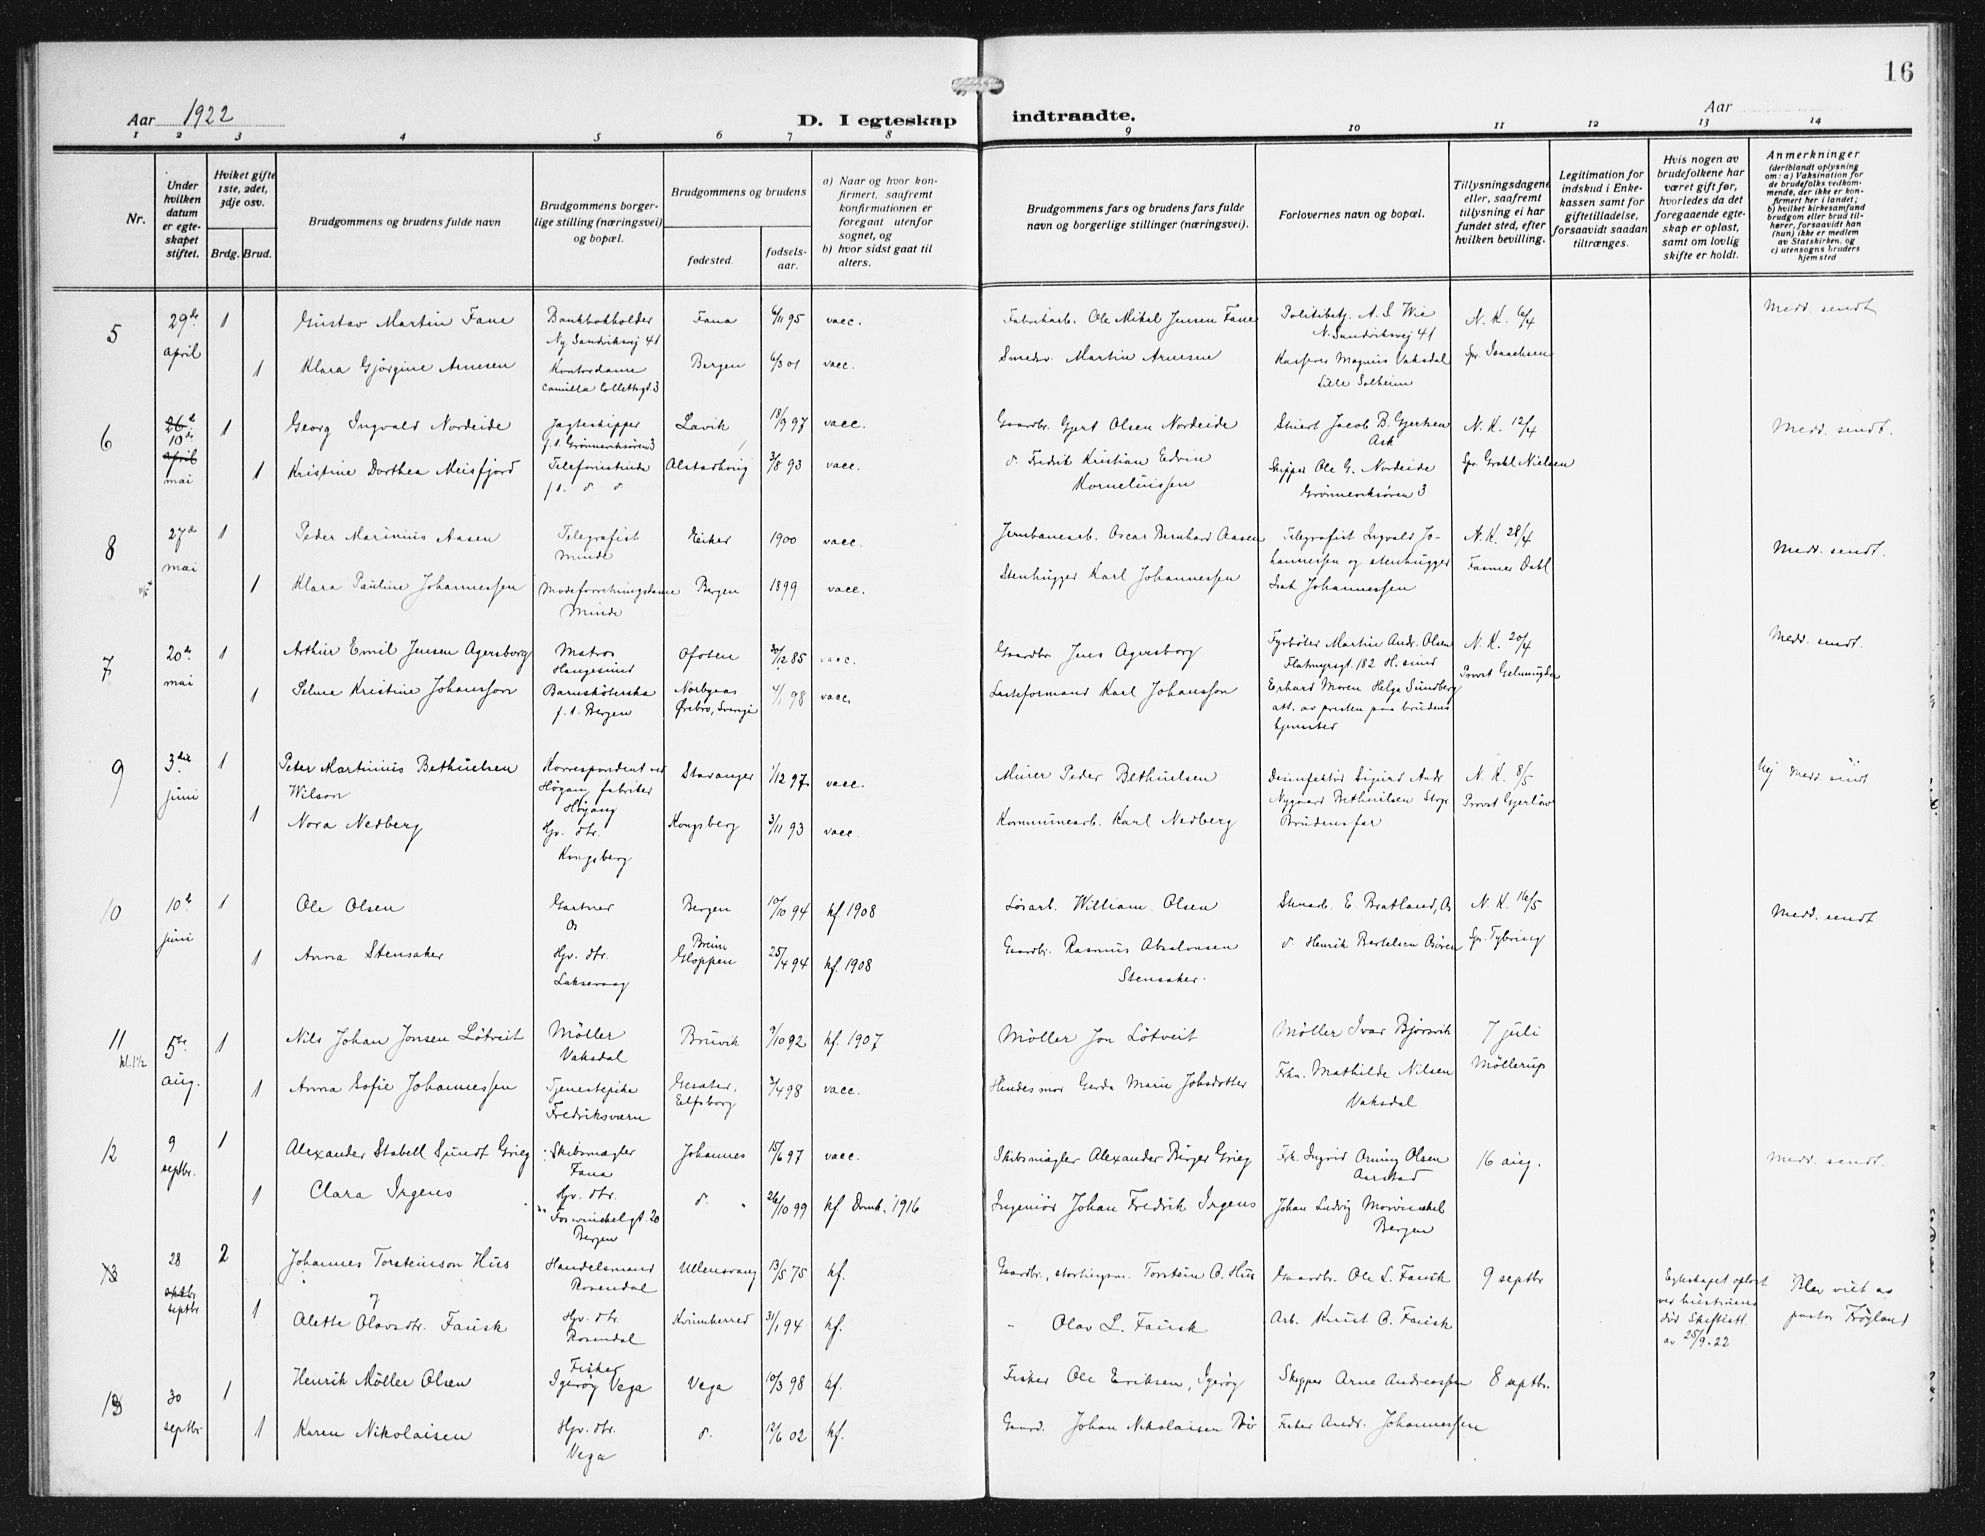 16
Aar 1922
D. I egteskap indtraadte.
Aar
1 2 3 4 5 6 7 8 9 10 11 12 13 14
Nr.
Under hvilken datum er egteskapet stiftet.
Hvilket gifte 1ste, 2det, 3dje osv.
Brdg. Brud.
Brudgommens og brudens fulde navn
Brudgommens borgerlige stilling (næringsvei) og bopæl.
Brudgommens og brudens
fødested.
fødselsaar.
a) Naar og hvor konfirmert, saafremt konfirmationen er foregaat utenfor sognet, og
b) hvor sidst gaat til alters.
Brudgommens fars og brudens fars fulde navn og borgerlige stillinger (næringsvei).
Forlovernes navn og bopæl.
Tillysningsdagene eller, saafremt tillysning ei har fundet sted, efter hvilken bevilling.
Legitimation for indskud i Enkekassen samt for giftetilladelse, forsaavidt saadan tiltrænges.
Hvis nogen av brudefolkene har været gift før, hvorledes da det foregaaende egteskap er opløst, samt om lovlig skifte er holdt.
Anmerkninger (deriblandt oplysning om: a) Vaksination for de brudefolks vedkommende, der ikke er konfirmert her i landet; b) hvilket kirkesamfund brudgom eller brud tilhører, forsaavidt han (hun) ikke er medlem av Statskirken, og c) utensogns bruders hjemsted
5 29de april 1 Gustav Martin Fane Bankbokholder Ny Sandviksvej 41 Fana 6/11 95 vacc. Fabrikarb. Ole Mikal Jensen Fane Politibetj. A. S. Wie N. Sandviksvej 41 N. K. 6/4 Medd. sendt
1 Klara Gjørgine Arnesen Kontordame Camilla Collettsgt. 3 Bergen 6/3 01 vacc. Smedsv. Martin Arnesen Kasserer Magnus Vaksdal Lille Solheim Spr. Isaachsen
6 26de 10de april mai 1 Georg Ingvald Nordeide Jagteskipper f. t. Grønneviksøren 3 Lavik 18/9 97 vacc. Gaardbr. Gjert Olsen Nordeide Stuert Jacob B. Gjertsen Ask N. K. 12/4 Medd. sendt.
1 Kristine Dorthea Meisfjord Telefonistinde f. t. d d Alstadhoug 3/8 93 vacc. d. Fredrik Kristian Edvin Korneliussen Skipper Ole G. Nordeide Grønneviksøren 3 Spr. Grahl Nielsen
8 27de mai 1 Peder Marinius Aasen Telegrafist Minde Eiker 1900 vacc. Jernbanearb. Oscar Bernhard Aasen Telegrafist Ingvald Johannessen og stenhugger N. K. 28/4 Medd. sendt.
1 Klara Pauline Johannessen Modeforretningsdame Minde Bergen 1899 vacc. Stenhugger Karl Johannessen Isak Johannessen Fasmer Dahl
7 20de mai 1 Arthur Emil Jensen Agersborg Matros Haugesund Ofoten 30/12 85 vacc. Gaardbr. Jens Agersborg Fyrbøter Martin Andr. Olsen Flatmyrsgt. 182 H.sund N. K. 20/4 Medd. sendt.
1 Selma Kristine Johansson Barnskøterska f. t. Bergen Norbyaas Ørebro, Sverige 4/1 98 vacc. Lasteformand Karl Johansson Erhard Moren Helga Sundberg att. av presten paa brudens hjemsted Provst Gelmuyden
9 3die juni 1 Peter Martinius Bethuelsen Wilson Korrespondent ved Høyang fabriker Høyang Stavanger 1/12 97 vacc. Murer Peder Bethuelsen Desinfektør Sigurd Andr. Nygaard Bethuelsen N. K. 8/5 Provst Gjerløw Ny Medd. sendt
1 Nora Nedberg Hjv. dtr. Kongsberg Kongsberg 3/11 93 vacc. Kommunearb. Karl Nedberg Brudensfar
10 10de juni 1 Ole Olsen Gartner Os Bergen 10/10 94 kf 1908 Løsarb. William Olsen E. Bratland, Os N. K. 16/5 Medd. sendt
1 Anna Stensaker Hjv. dtr. Laksevaag Breim Gloppen 25/4 94 kf. 1908 Gaardbr. Rasmus Absalonsen Stensaker. d. Henrik Bertelsen Osøren Spr. Tybring
11 kl. 1½ 5te aug. 1 Nils Johan Jonsen Løtveit Møller Vaksdal Bruvik 9/10 92 kf 1907 Møller Jon Løtveit Møller Ivar Bjørsvik 7 juli
1 Anna Sofie Johannessen Tjenestepike Fredriksværn Gesäter, Elfsborg 3/4 98 vacc. Hendes mor Gerda Marie Johsdotter Frkn. Mathilde Nilsen Vaksdal Møllerup
12 9 septbr. 1 Alexander Stabell Sundt Grieg Skibsmægler Fana Johannes 15/6 97 vacc. Skibsmægler Alexander Birger Grieg Frk. Ingrid Olsen Aarstad 16 aug. Medd. sendt.
1 Clara Irgens Hjv. dtr. Fosswinckelgt. 20 Bergen d. 26/10 99 kf Domk. 1916 Ingeniør Johan Fredrik Irgens Johan Ludvig Mowinckel Bergen
13 28 septbr 2 Johannes Torsteinson Hus Handelsmand Rosendal Ullensvang 13/5 75 kf. Gaardbr., stortingsm. Torstein O. Hus Gaardbr. Ole L. Fausk 9 septbr Egteskapet opløst ved hustruens død Skifteatt. av 25/9. 22 Blev viet av pastor Frøyland
1 Alette Olavsdtr. Fausk Hjv. dtr. Rosendal Kvinnherred 31/1 94 kf. " Olav L. Fausk Arb. Knut O. Fausk
13 30 septbr 1 Henrik Møller Olsen Fisker Igerøy Vega Vega 10/3 98 kf. Fisker Ole Eriksen, Igerøy Skipper Arne Andreassen 8 septbr.
1 Karen Nikolaisen Hjv. dtr. Vega d. 12/6 02 kf. Gaard. Johan Nikolaisen Fisker Andr. Johannessen